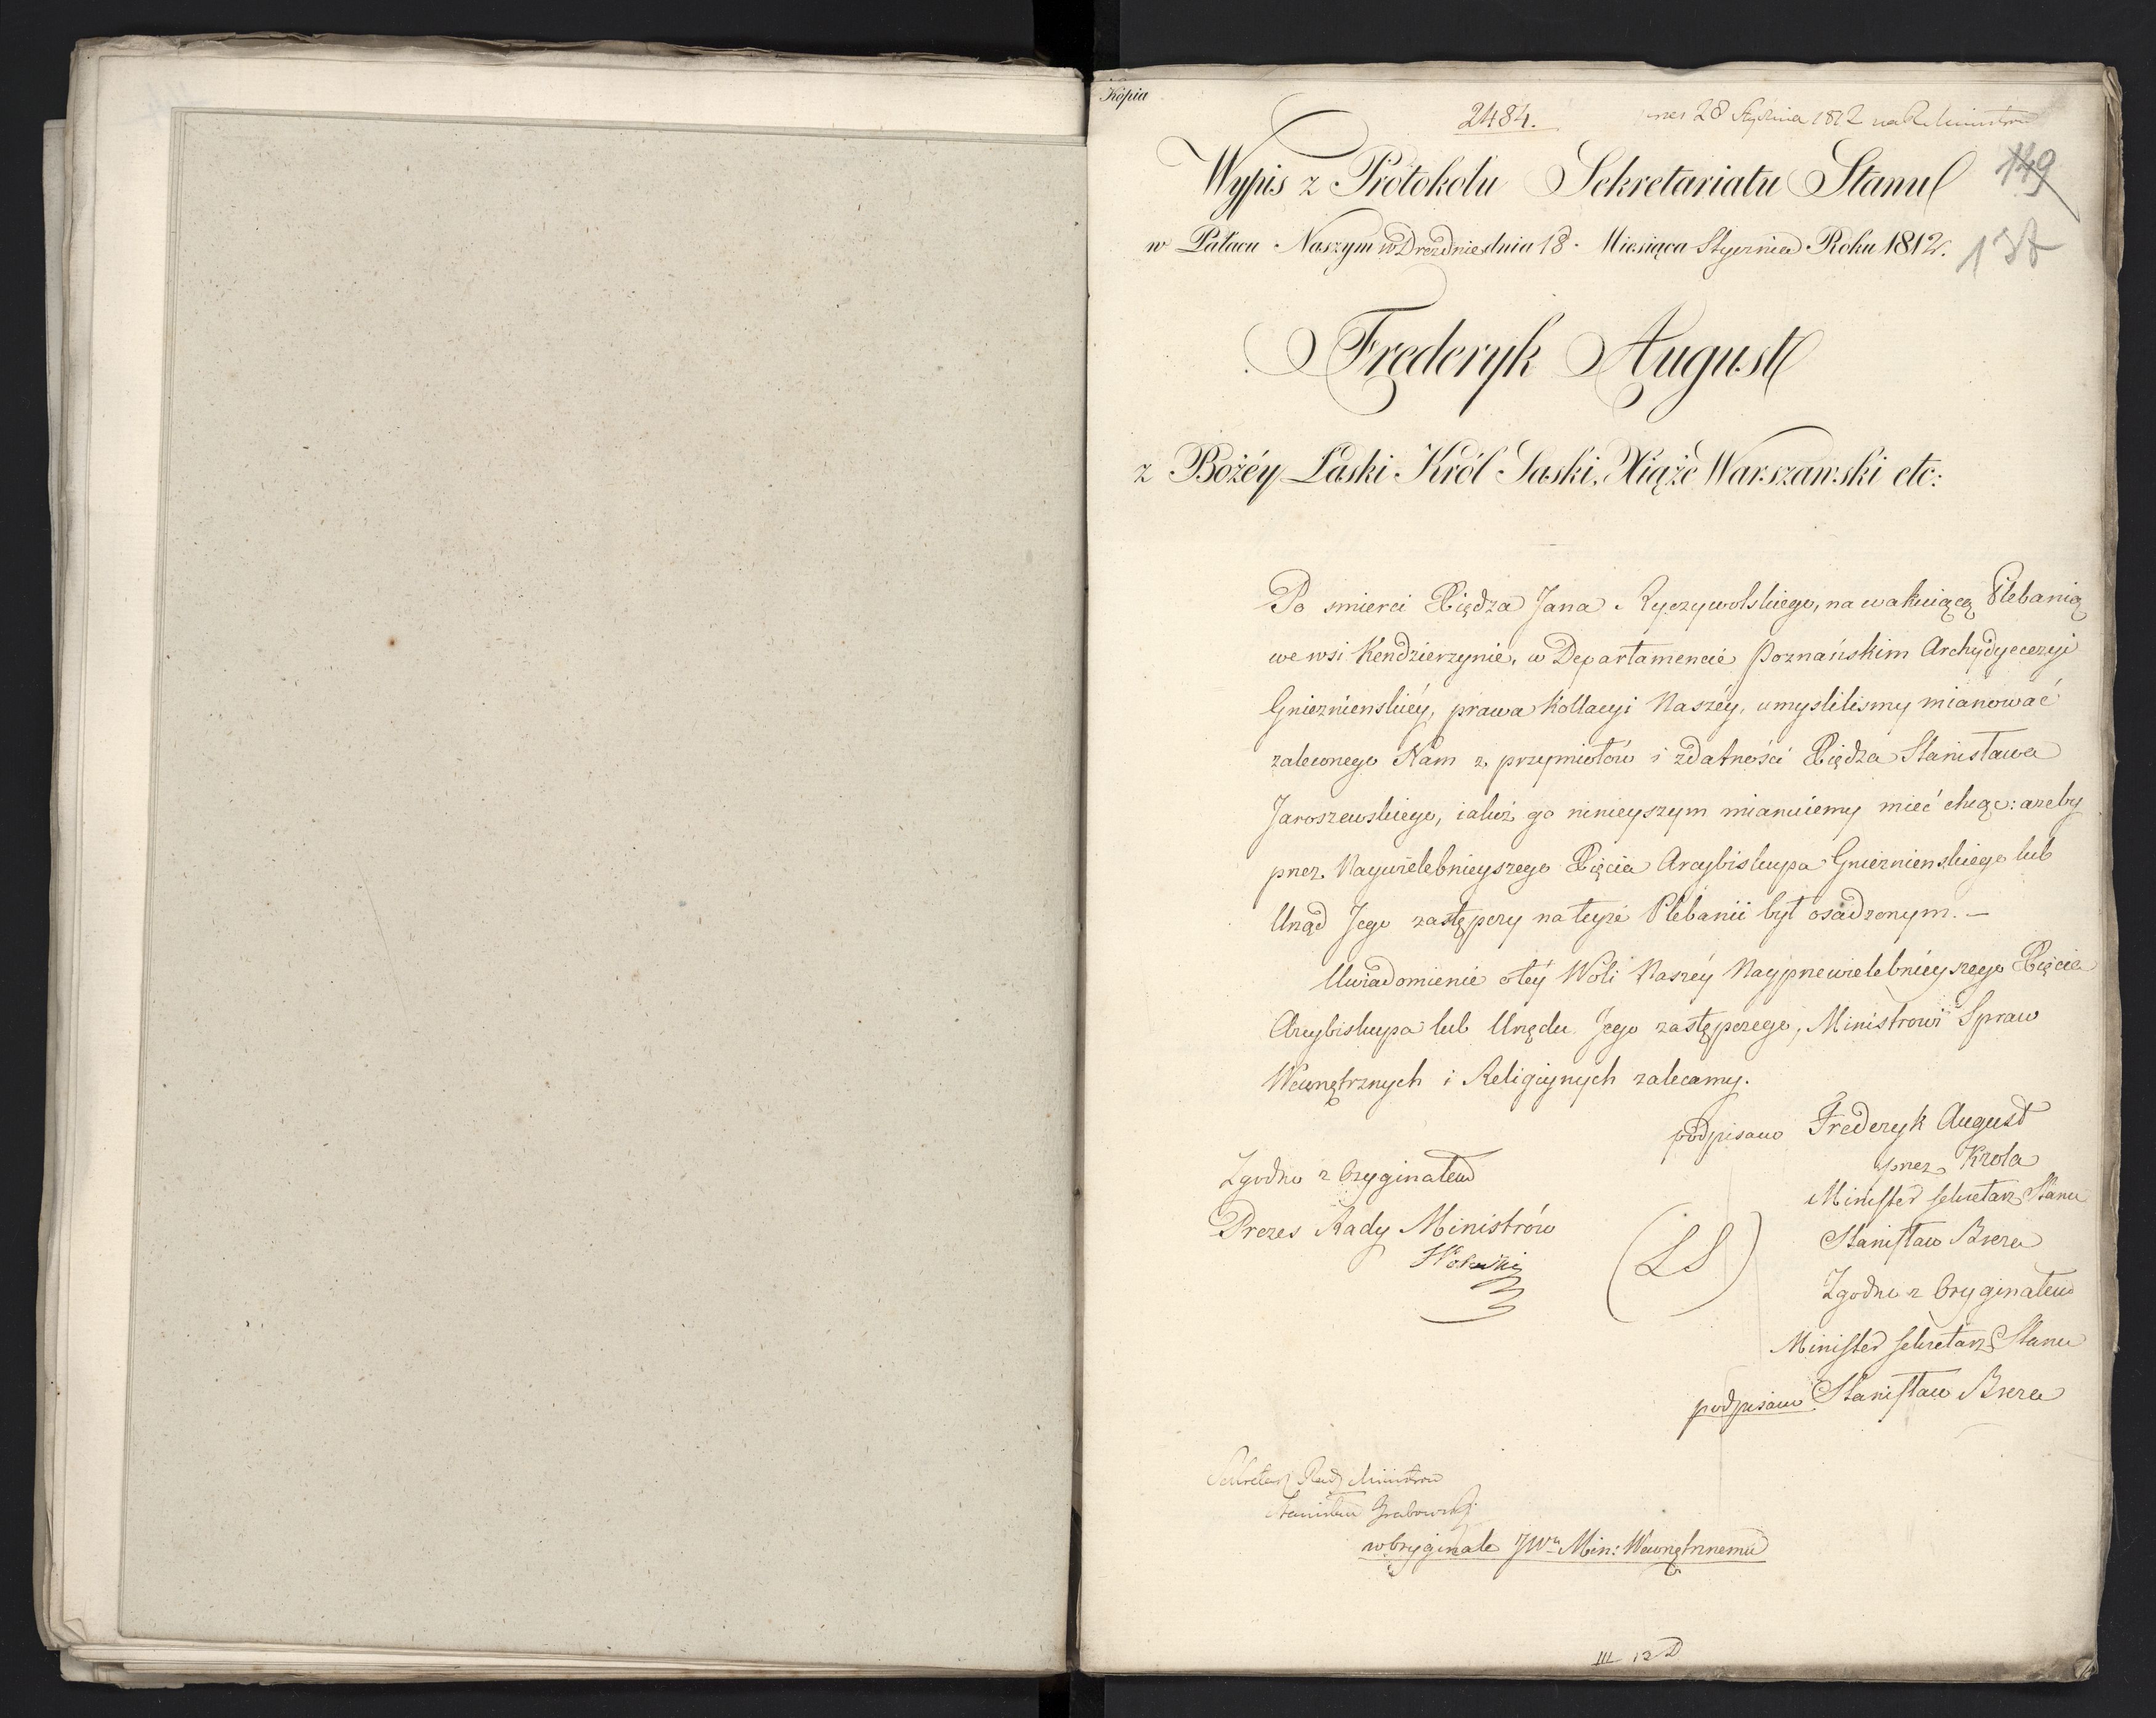 Kopia
2484.
28 Stycznia 1812 na R. Ministrów
Wypis z Protokołu Sekretariatu Stanu
149
w Pałacu Naszym w Dreźdnie dnia 18. Miesiąca Stycznia Roku 1812.
137
Frederyk August
z Bożéy Łaski Król Saski, Xiąże Warszawski etc:
Po smierci Xiędza Jana Ryczywolskiego, na wakuiącą Plebanią
we wsi Kendzierzynie, w Departamencie Poznańskim Archydyecezyi
Gnieznienskiéy, prawa Kollacyi Naszéy, umyslilismy mianować
zaleconego Nam z przymiotów i zdatności Xiędza Stanisława
Jaroszewskiego, iakoż go ninieyszym mianuiemy mieć chcąc: azeby
przez Naywielebnieyszego Xięcia Arcybiskupa Gnieznienskiego lub
Urząd Jego zastępczy na teyże Plebanii był osadzonym. —
Uwiadomienie o téy Woli Naszéy Nayprzewielebnieyszego Xięcia
Arcybiskupa lub Urzędu Jego zastępczego, Ministrowi Spraw
Wewnętrznych i Religiynych zalecamy.
podpisano Frederyk August
przez Krola
Minister Sekretarz Stanu
Stanisław Breza
Zgodno z Oryginałem
Prezes Rady Ministrów
(LS)
Zgodno z Oryginałem
Minister Sekretarz Stanu
podpisano Stanisław Breza
Sekretarz Rady Ministrow
Stanisław Grabowski
w Oryginale JWu Min: Wewnętrznemu
III 12 D